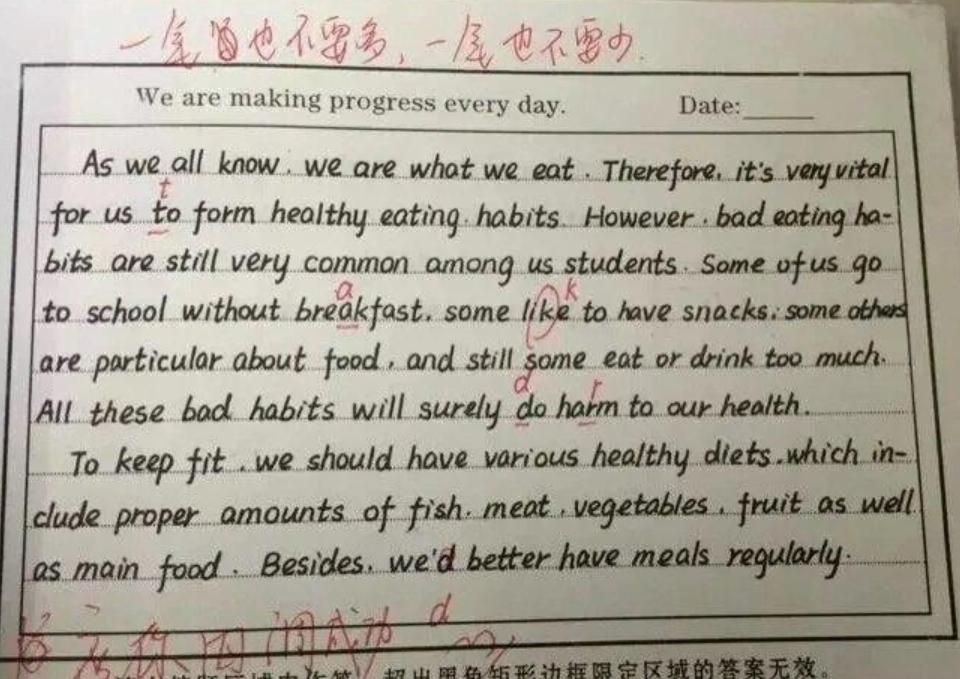 一尾也不要多，一尾也不要少.
We are making progress every day. Date:
As we all know, we are what we eat. Therefore, it's very vital
t
for us to form healthy eating habits. However, bad eating ha-
bits are still very common among us students. Some of us go
a k
to school without breakfast, some like to have snacks, some others
are particular about food, and still some eat or drink too much.
d r
All these bad habits will surely do harm to our health.
To keep fit, we should have various healthy diets, which in-
clude proper amounts of fish, meat, vegetables, fruit as well
as main food. Besides, we'd better have meals regularly.
d
超出黑色矩形边框限定区域的答案无效。